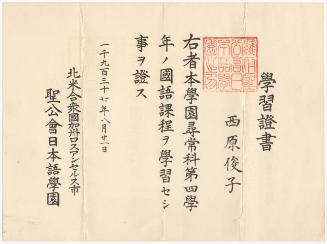 學習證書
西原俊子
右者本學園尋常科第四學
年ノ國語課程ヲ學習セシ
事ヲ證ス
一千九百三十七年八月廿一日
北米合衆國加州ロスアンゼルス市
聖公會日本語學園